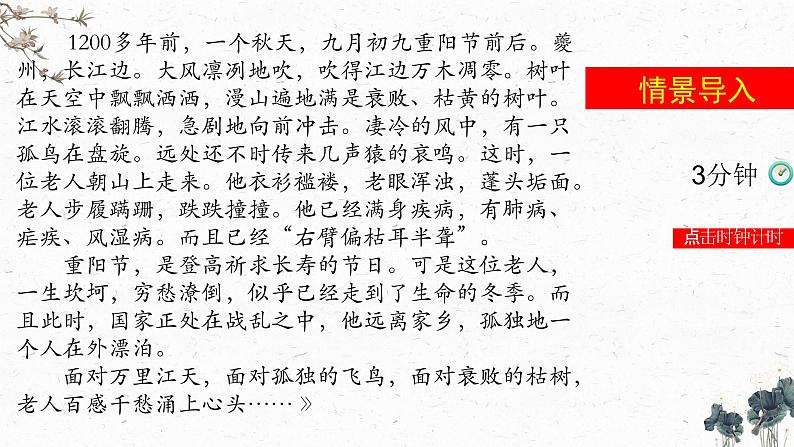 1200多年前，一个秋天，九月初九重阳节前后。夔
州，长江边。大风凛冽地吹，吹得江边万木凋零。树叶
在天空中飘飘洒洒，漫山遍地满是衰败、枯黄的树叶。
江水滚滚翻腾，急剧地向前冲击。凄冷的风中，有一只
孤鸟在盘旋。远处还不时传来几声猿的哀鸣。这时，一
位老人朝山上走来。他衣衫褴褛，老眼浑浊，蓬头垢面。
老人步履蹒跚，跌跌撞撞。他已经满身疾病，有肺病、
疟疾、风湿病。而且已经“右臂偏枯耳半聋”。
重阳节，是登高祈求长寿的节日。可是这位老人，
一生坎坷，穷愁潦倒，似乎已经走到了生命的冬季。而
且此时，国家正处在战乱之中，他远离家乡，孤独地一
个人在外漂泊。
面对万里江天，面对孤独的飞鸟，面对衰败的枯树，
老人百感千愁涌上心头……》
情景导入
3分钟
点击时钟计时